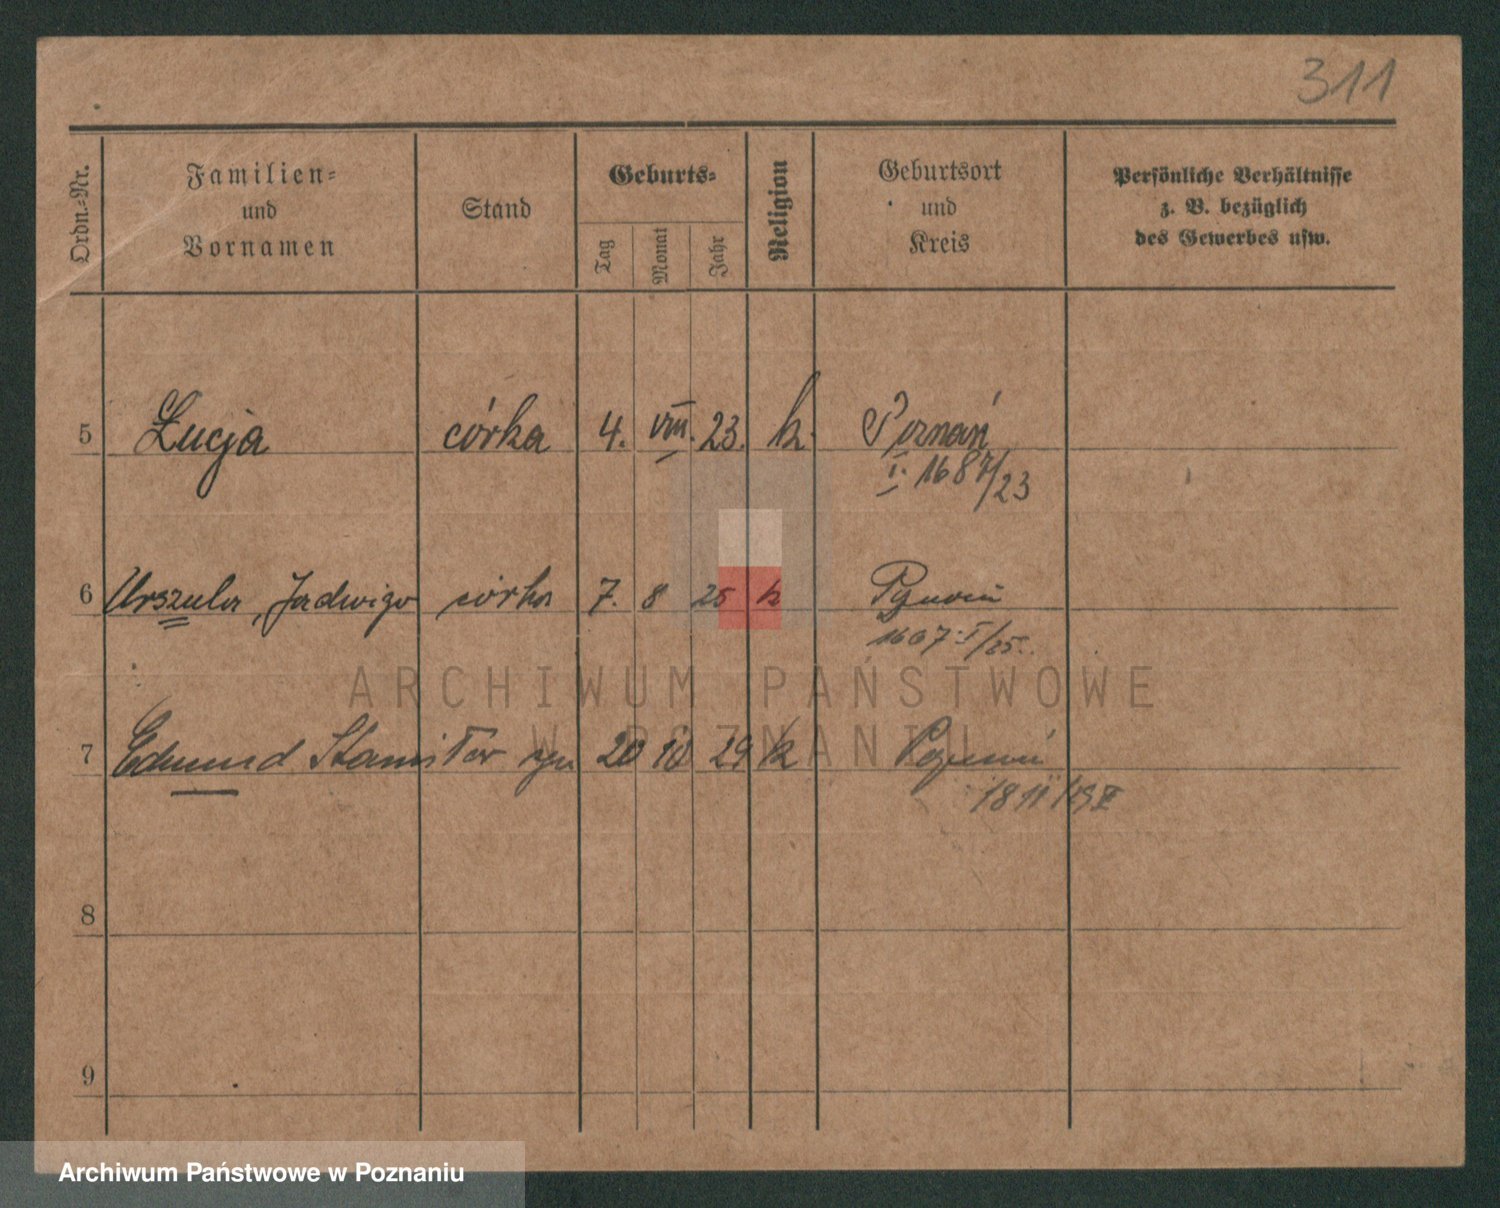 311
Ordn.-Nr.
Familien-
und
Vornamen
Stand
Geburts-
Tag
Monat
Jahr
Religion
Geburtsort
und
Kreis
Persönliche Verhältnisse
z. B. bezüglich
des Gewerbes usw.
5 Łucja córka 4. VIII. 23. k. Poznań
I. 1687/23
6 Urszula, Jadwiga córka 7. 8 25 k Poznań
1607 I/25.
ARCHIWUM PAŃSTWOWE
W POZNANIU
7 Edmund Stanisław syn 20 10 29 k Poznań
1811/29 II
8
9
Archiwum Państwowe w Poznaniu